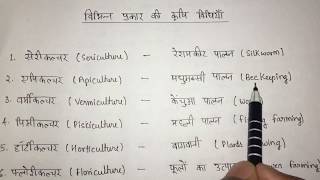 विभिन्न प्रकार की कृषि विधियाँ
1. सेरीकल्चर (Sericulture) – रेशमकीट पालन (Silkworm)
2. एपीकल्चर (Apiculture) – मधुमक्खी पालन (Bee Keeping)
3. वर्मीकल्चर (Vermiculture) – केंचुआ पालन
4. पिसीकल्चर (Pisciculture) – मछली पालन farming)
5. हॉर्टीकल्चर (Horticulture) – बागवानी (Plants
6. फ्लोरीकल्चर (Floriculture) – फूलों का farming)